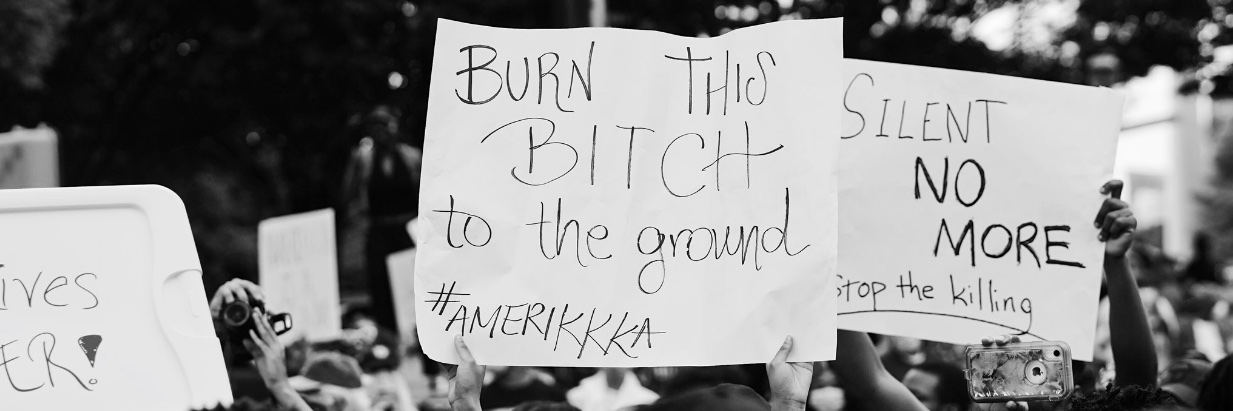 ives
ER!
BURN THIS
BITCH
to the ground
#AMERIKKKA
SILENT
NO
MORE
Stop the killing